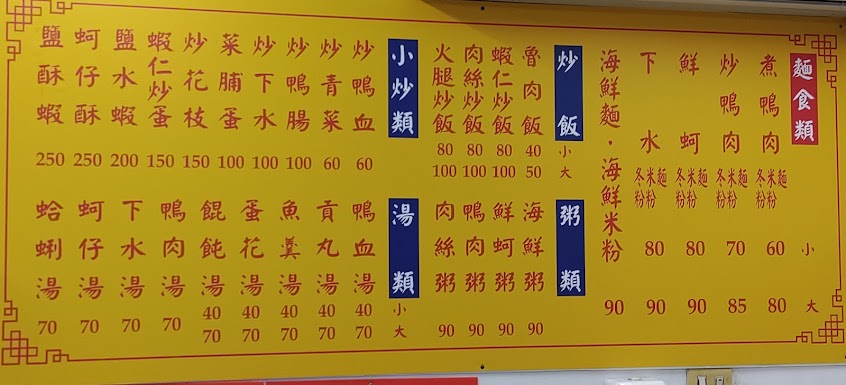 麵食類
煮鴨肉 麵 米粉 冬粉 小60 大80
炒鴨肉 麵 米粉 冬粉 70 85
鮮蚵 麵 米粉 冬粉 80 90
下水 麵 米粉 冬粉 80 90
海鮮麵・海鮮米粉 90
炒飯
魯肉飯 小40 大50
蝦仁炒飯 80 100
肉絲炒飯 80 100
火腿炒飯 80 100
粥類
海鮮粥 90
鮮蚵粥 90
鴨肉粥 90
肉絲粥 90
小炒類
炒鴨血 60
炒青菜 60
炒鴨腸 100
炒下水 100
菜脯蛋 100
炒花枝 150
蝦仁炒蛋 150
鹽水蝦 200
蚵仔酥 250
鹽酥蝦 250
湯類
鴨血湯 小40 大70
貢丸湯 40 70
魚羹湯 40 70
蛋花湯 40 70
餛飩湯 40 70
鴨肉湯 70
下水湯 70
蚵仔湯 70
蛤蜊湯 70